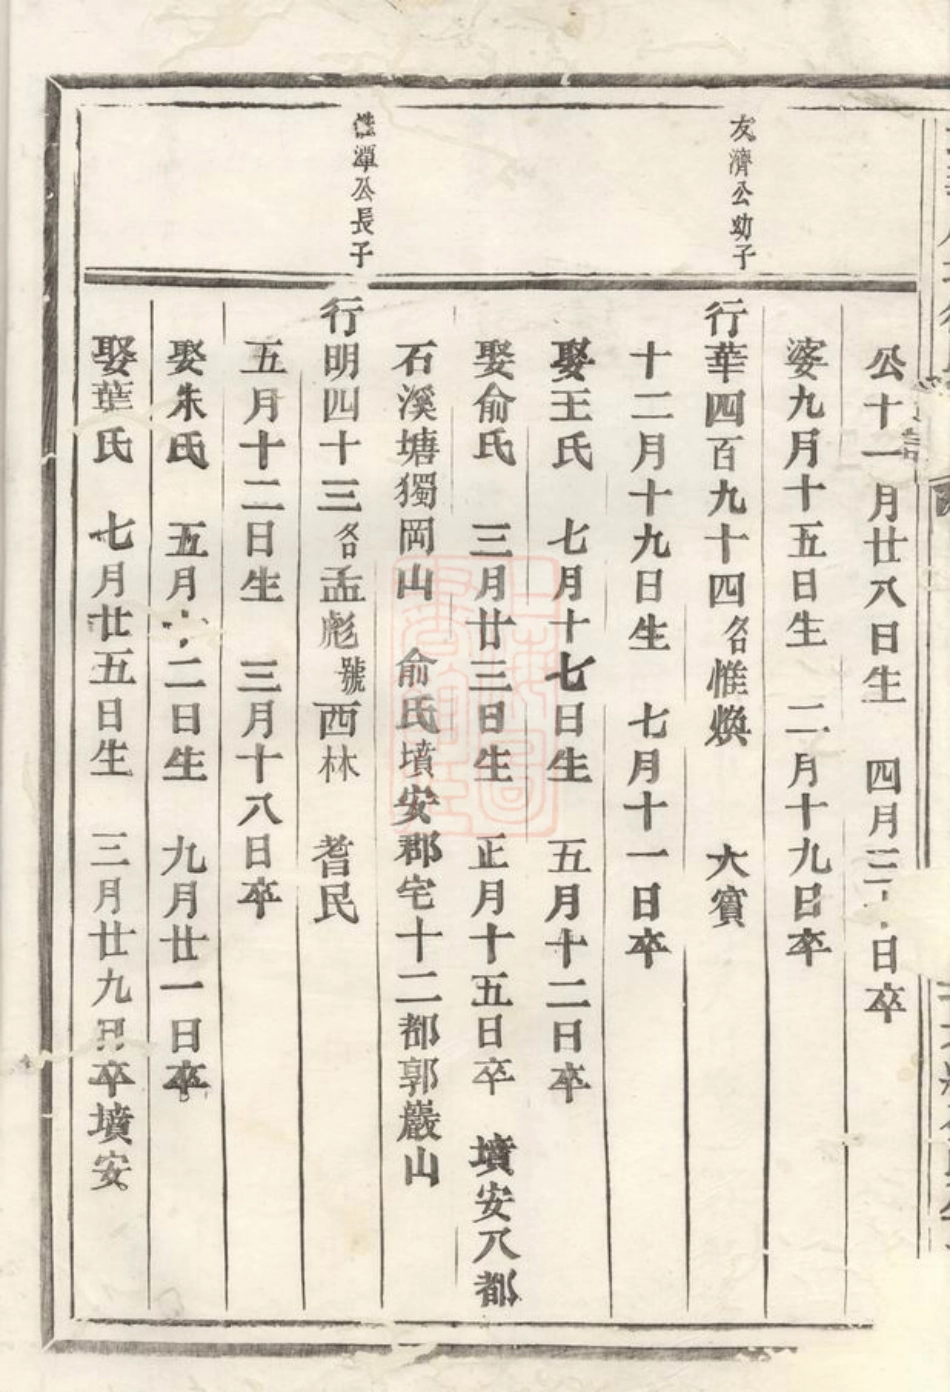 公十一月廿八日生 四月三 日卒
婆九月十五日生 二月十九日卒
友濟公幼子
行華四百九十四名惟煥 大賓
十二月十九日生 七月十一日卒
娶王氏 七月十七日生 五月十二日卒
娶俞氏 三月廿三日生 正月十五日卒 墳安八都
石溪塘獨岡山 俞氏墳安郡宅十二都郭巖山
潭公長子
行明四十三名孟彪號西林 耆民
五月十二日生 三月十八日卒
娶朱氏 五月 二日生 九月廿一日卒
娶葉氏 七月廿五日生 三月廿九日卒墳安